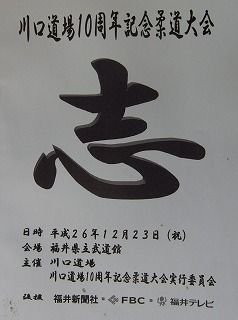 川口道場10周年記念柔道大会
志
日時 平成26年12月23日(祝)
会場 福井県立武道館
主催 川口道場
川口道場10周年記念柔道大会実行委員会
後援 福井新聞社・FBC・福井テレビ